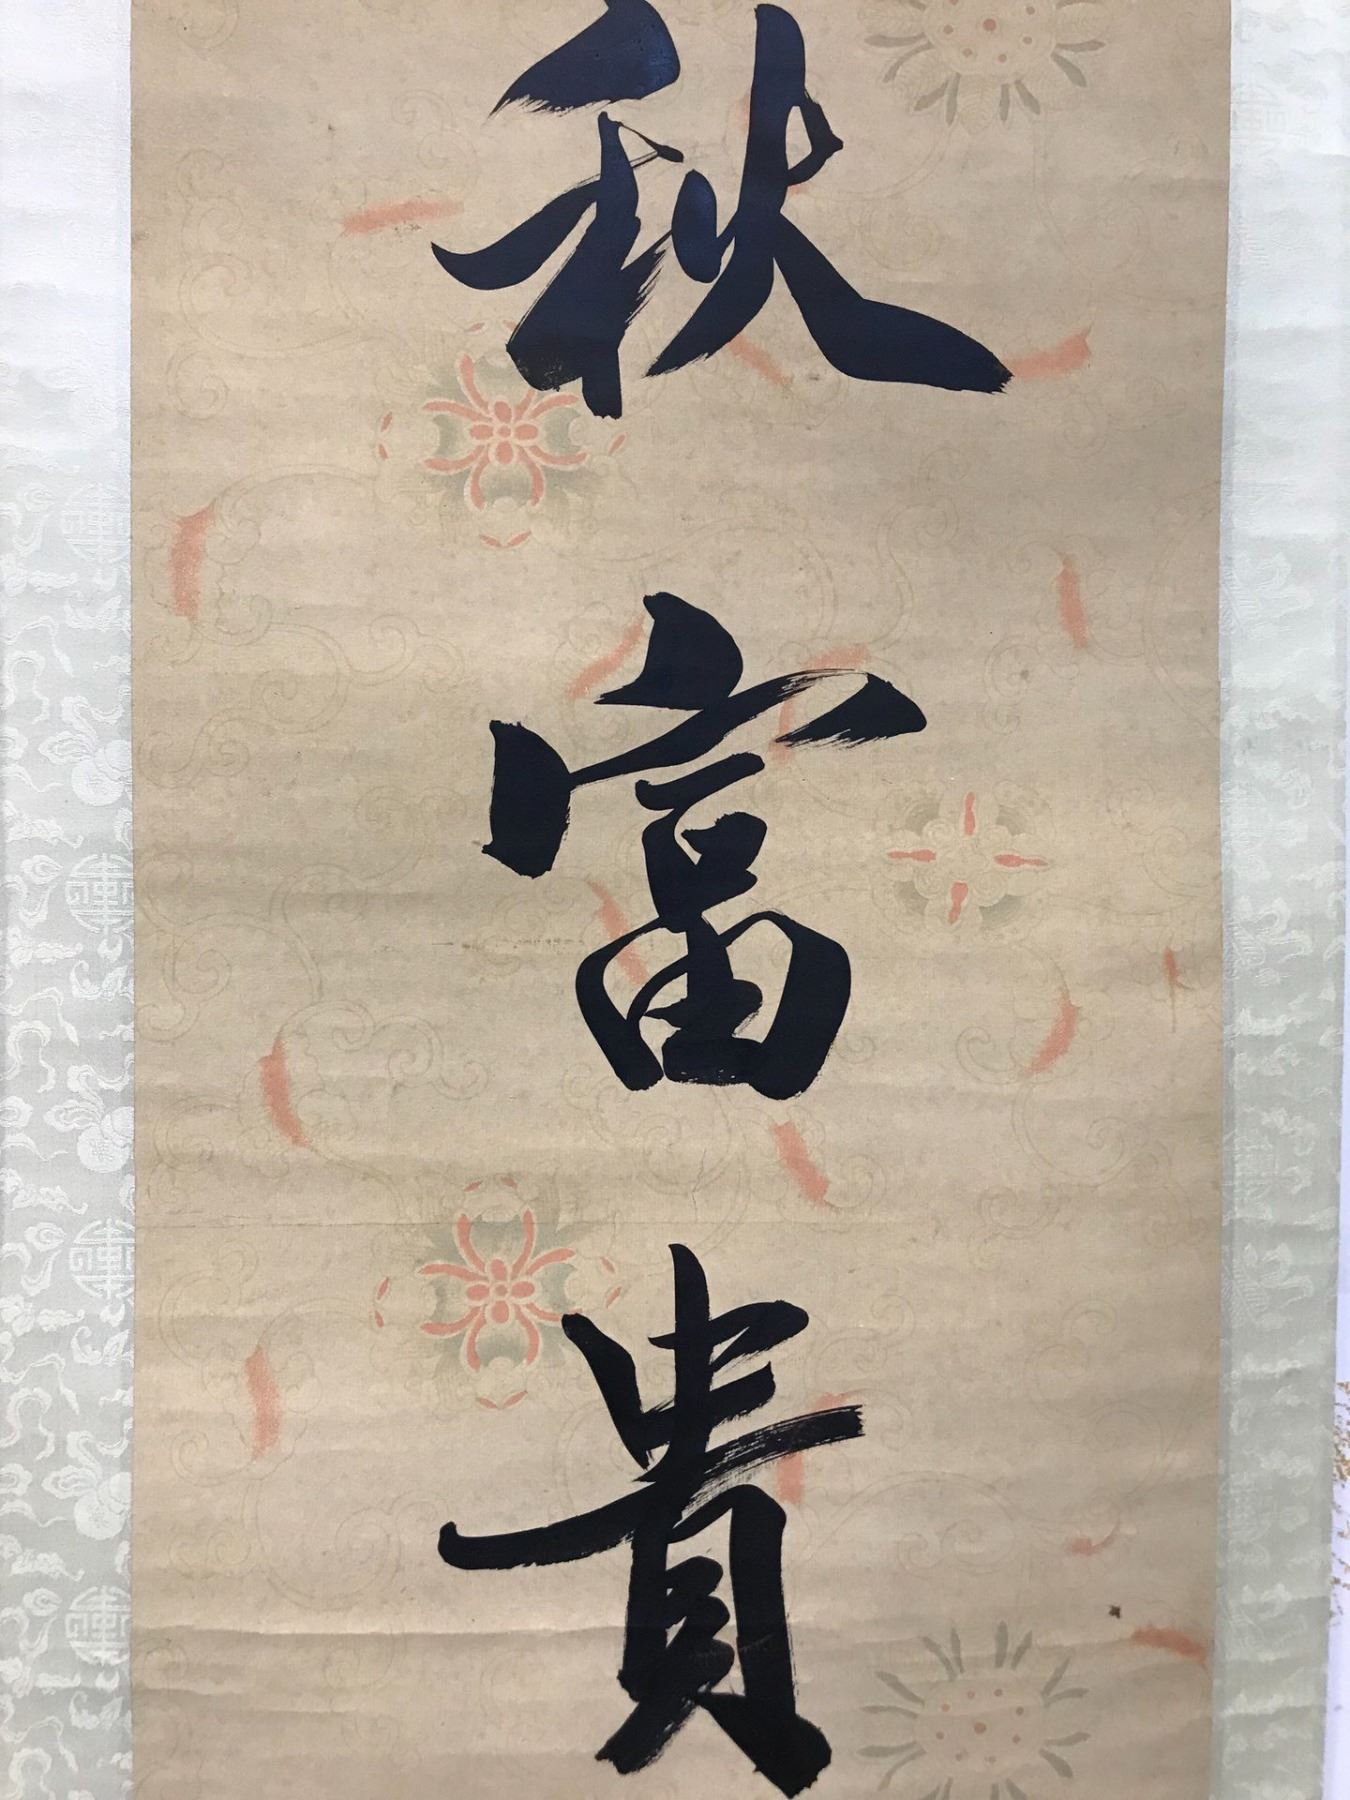 秋富貴